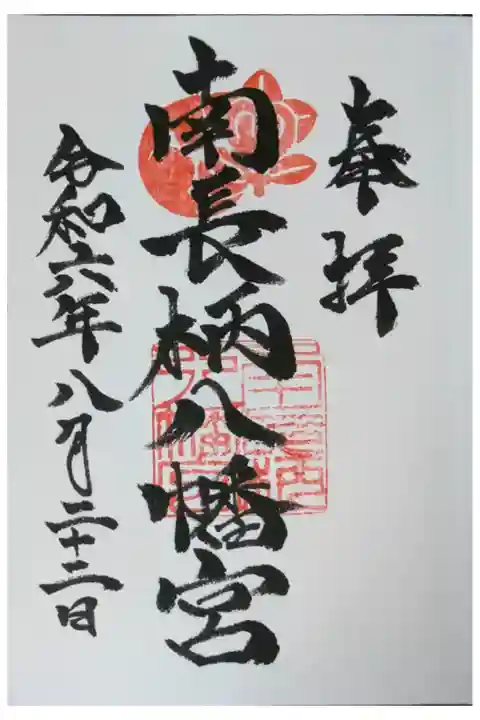 奉拝
南長柄八幡宮
令和六年八月二十三日